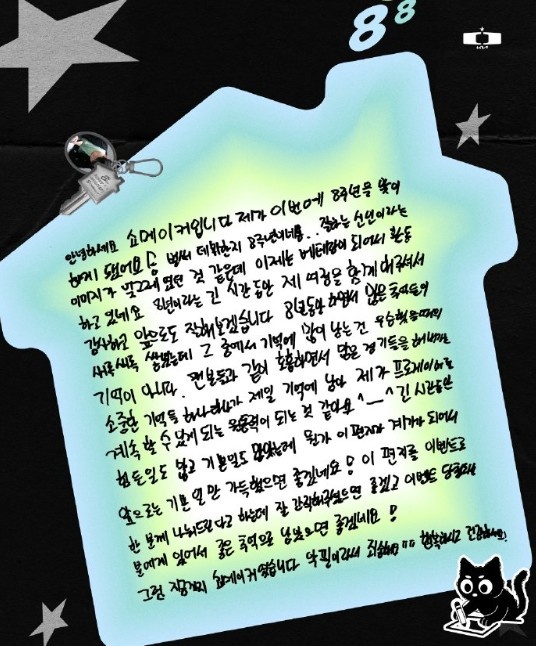 88
안녕하세요 쇼메이커입니다 제가 이번에 8주년을 맞이
하게 됐어요 벌써 데뷔한지 8주년이네요.. 잘하는 신인이라는
이미지가 엊그제 였던 것 같은데 이제는 베테랑이 되어서 활동
하고 있네요 8년이라는 긴 시간동안 제 여정을 함께 해주셔서
감사하고 앞으로도 잘해보겠습니다 8년동안 하면서 많은 추억들이
새록새록 쌓였는데 그 중에서 기억에 많이 남는건 우승했을때의
기억이 아니라, 팬분들과 같이 호흡하면서 많은 경기들을 해내가는
소중한 기억들 하나하나가 제일 기억에 남아 제가 프로게이머로
계속 할 수 있게 되는 원동력이 되는 것 같아요 ^ㅡ^ 긴 시간동안
힘든일도 많고 기쁜일도 많았는데 뭔가 이 편지가 계기가 되어서
앞으로는 기쁜 일만 가득했으면 좋겠네요! 이 편지를 이벤트로
한 분께 나눠드린다고 하는데 잘 간직해주셨으면 좋겠고 이벤트 당첨자
분에게 있어서 좋은 추억으로 남았으면 좋겠네요!
그럼 지금까지 쇼메이커였습니다 악필이라서 죄송해요ㅠㅠ 행복하시고 건강하세요!